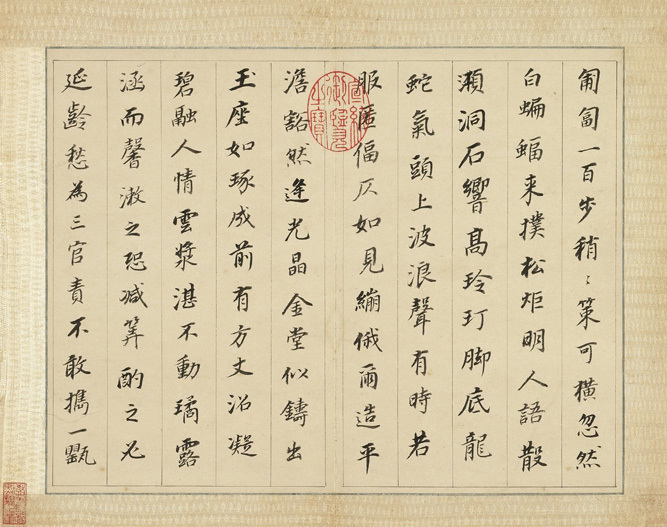 匍匐一百步稍〻策可横忽然
白蝙蝠来撲松炬明人語散
澒洞石響高玲玎脚底龍
蛇氣頭上波浪聲有時若
服匿偪仄如見繃俄爾造平
澹豁然逢光晶金堂似鑄出
玉座如琢成前有方丈沼凝
碧融人情雲漿湛不動璚露
涵而馨漱之恐減筭酌之必
延齡愁為三官責不敢擕一甖
宣統御覽之寶